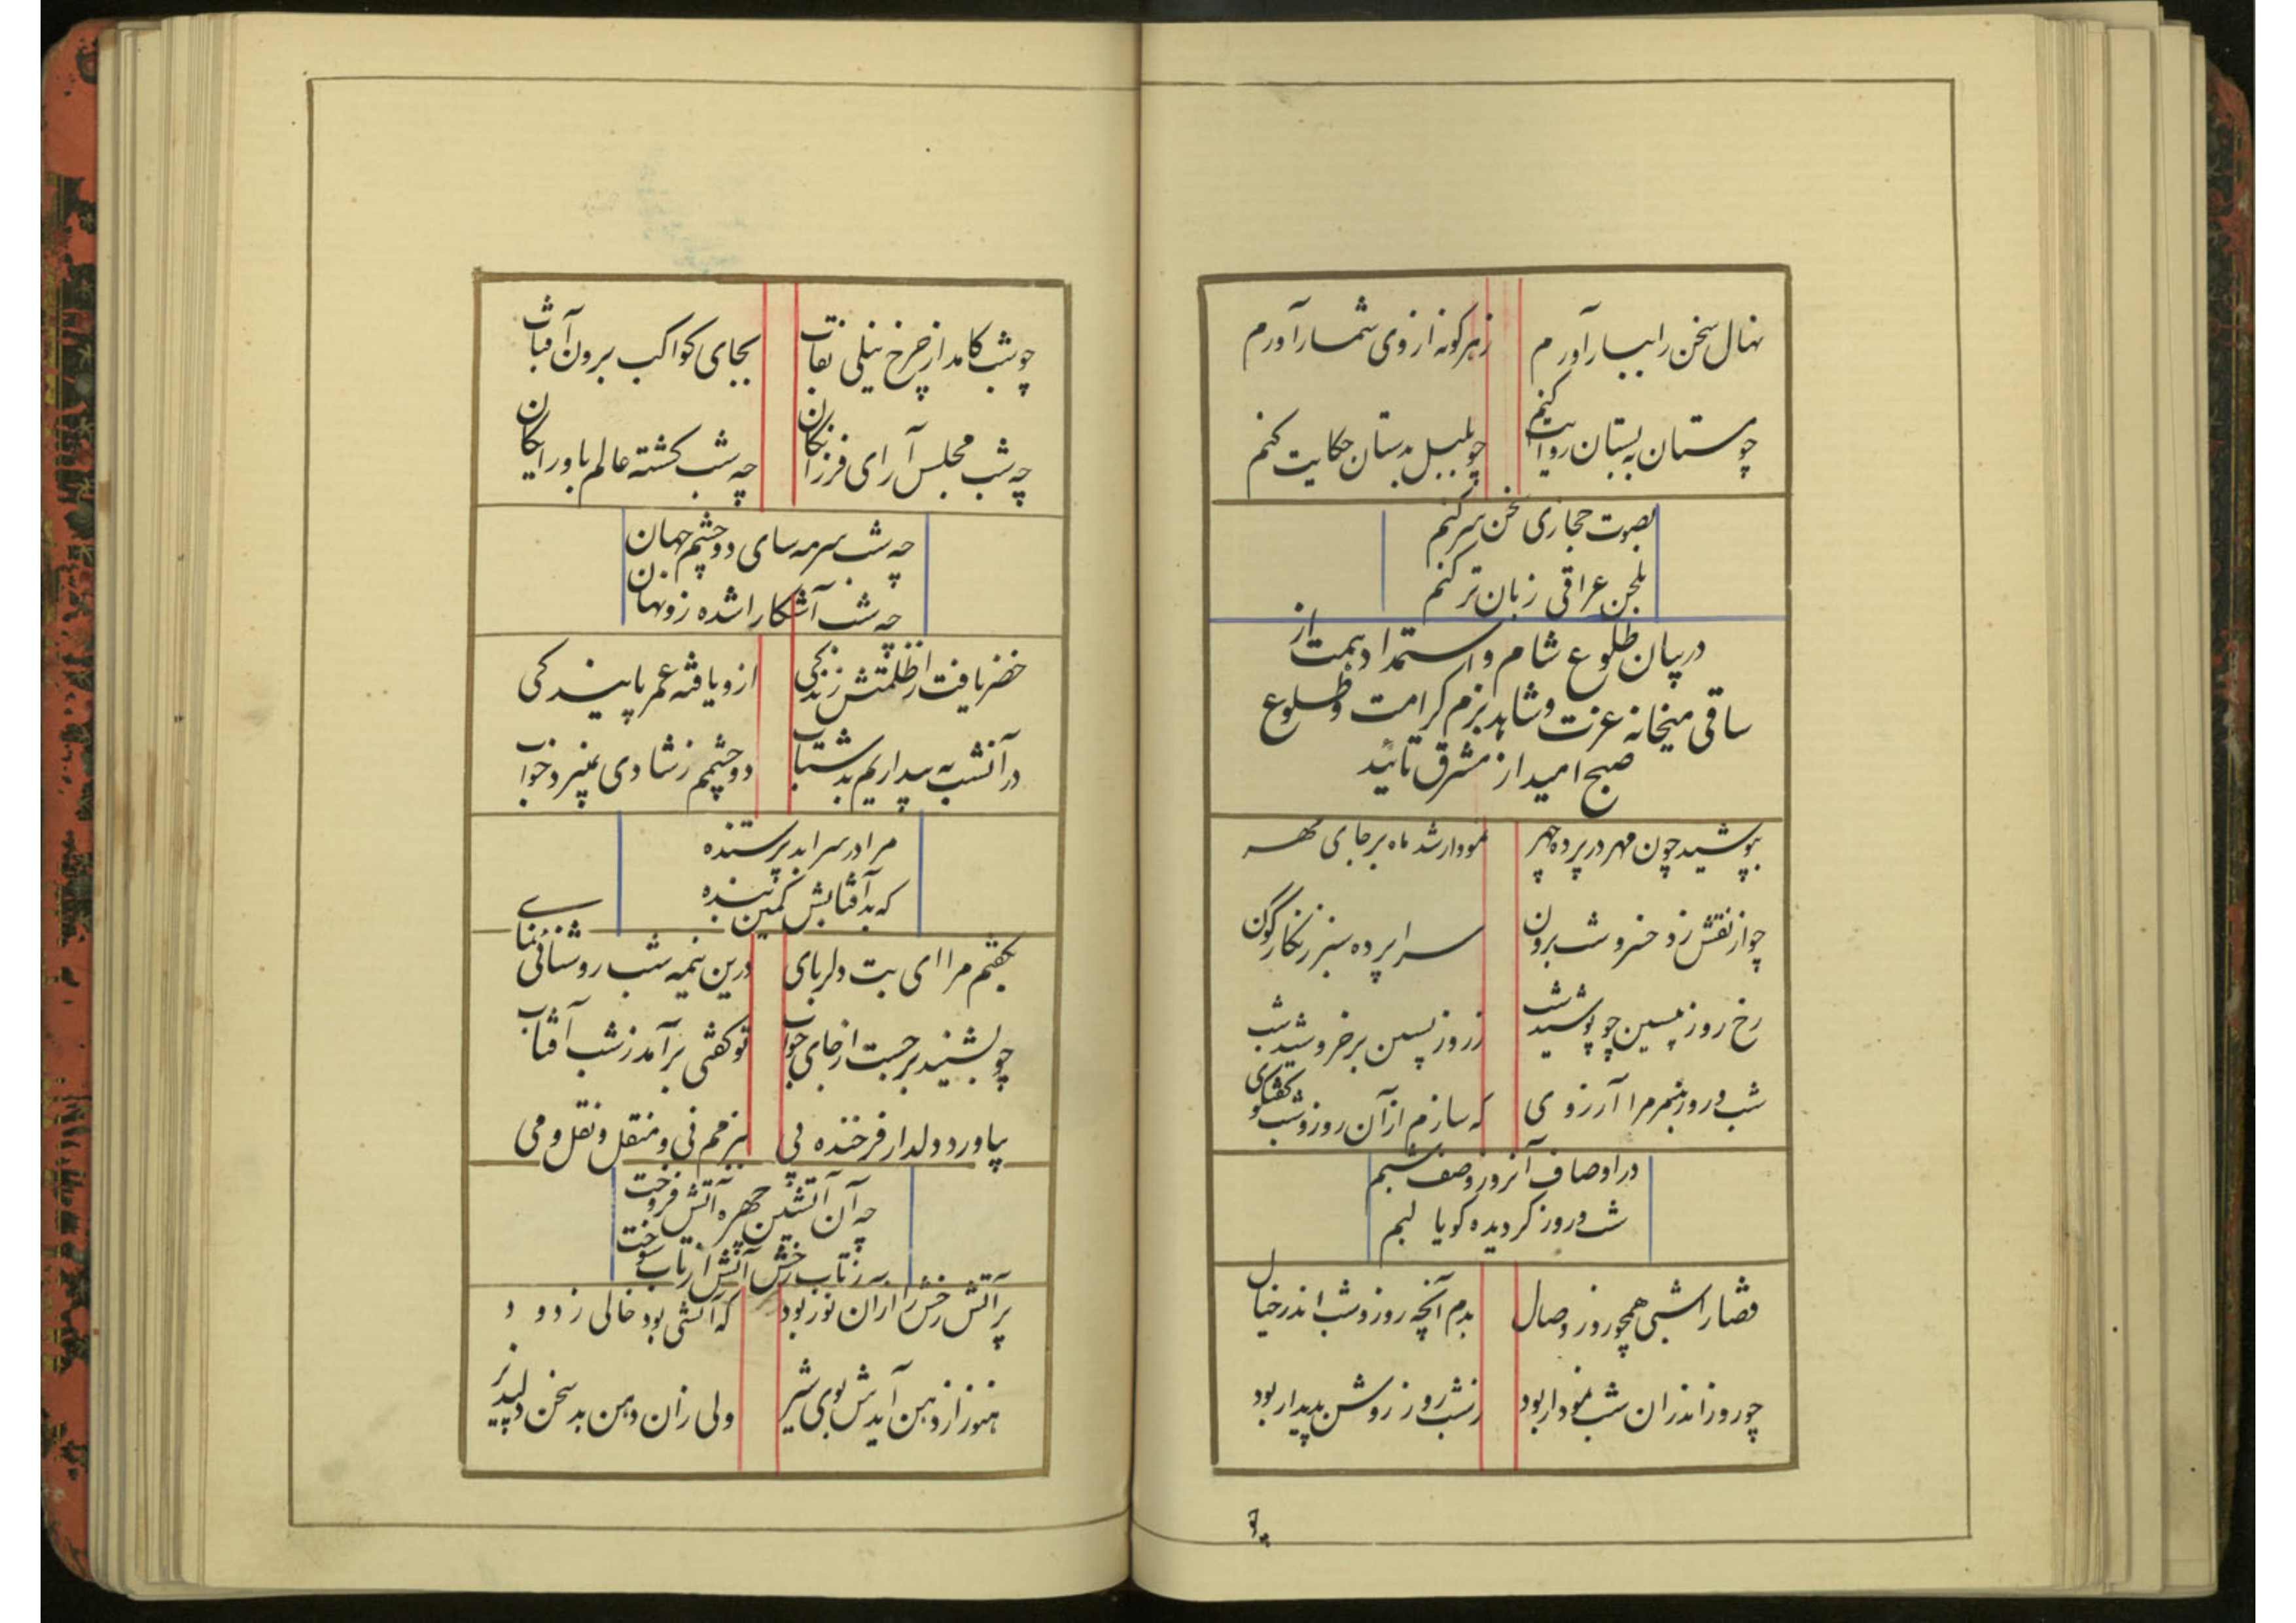 نهال سخن را ببار آورم
زهرگونه از وی شمار آورم
چو مستان به بستان روایت کنم
چو بلبل بدستان حکایت کنم
بصوت حجازی سخن سر کنم
بلحن عراقی زبان تر کنم
در بیان طلوع شام و استمداد همت از
ساقی میخانه عزت و شاهد بزم کرامت و طلوع
صبح امید از مشرق تائید
بپوشید چون مهر در پرده چهر
نمودار شد ماه بر جای مهر
چو از نقش زد خسرو شب برون
سراپرده سبز زنگارگون
رخ روز پسین چو پوشید شب
ز روز پسین بر خروشید شب
شب و روز بینم مرا آرزوی
که سازم از آن روز و شب گفتگوی
در اوصاف آنروز وصف شبم
شب و روز گردیده گویا لبم
قضا را شبی همچو روز وصال
بدم آنچه روز و شب اندر خیال
چو روز اندران شب نمودار بود
زشب روز روشن پدیدار بود
چو
چو شب کامد از چرخ نیلی نقاب
بجای کواکب برون آفتاب
چه شب مجلس آرای فرزانگان
چه شب گشته عالم باو رایگان
چه شب سرمه سای دو چشم جهان
چه شب آشکارا شده زو نهان
خضر یافت از ظلمتش زندگی
ازو یافته عمر پایندگی
در آنشب به بیداریم بد شتاب
دو چشمم زشادی نمیبرد خواب
مرا در سرا بد پرستنده
که بد آفتابش کمین بنده
بگفتم مرا ای بت دلربای
درین نیمه شب روشنائی نمای
چو بشنید برجست از جای خواب
تو گفتی برآمد زشب آفتاب
بیاورد دلدار فرخنده پی
ببزمم نی و منقل و نقل و می
چه آن آتشین چهره آتش فروخت
زتاب رخش آتش از تاب سوخت
بر آتش رخش را از آن نور بود
که آتشی بود خالی ز دود
هنوز از دهن آیدش بوی شیر
ولی زان دهن بد سخن دلپذیر